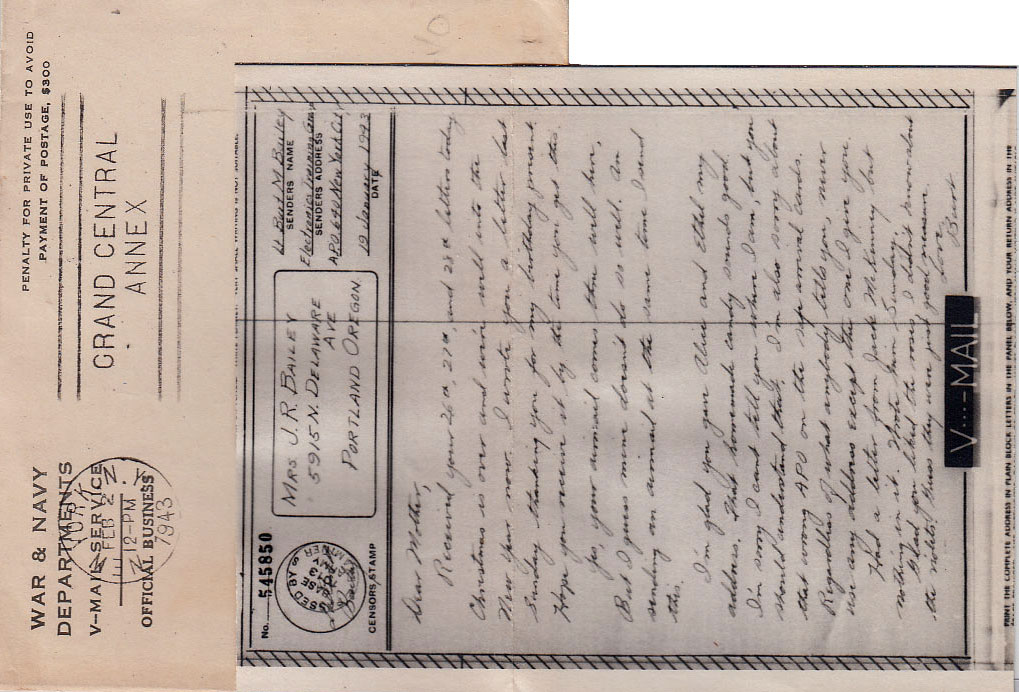 PENALTY FOR PRIVATE USE TO AVOID
PAYMENT OF POSTAGE, $300
WAR & NAVY
DEPARTMENTS
V-MAIL SERVICE
OFFICIAL BUSINESS
GRAND CENTRAL
ANNEX
FEB 2
12-PM
1943
No. 545850
MRS J.R. BAILEY
5915 N. DELAWARE
AVE
PORTLAND OREGON
CENSOR'S STAMP
Lt Burt M Bailey
SENDERS NAME
SENDERS ADDRESS
New York City
12 January 1943
DATE
Dear Mother,
Received your 26th, 27th, and 28th letters today
Christmas is over and we're well into the
New Year now. I wrote you a letter last
Sunday thanking you for my birthday present.
Hope you receive it by the time you get this.
Yes, your airmail comes thru well here,
But I guess mine doesn't do so well. Am
sending an airmail at the same time I send
this.
I'm glad you gave Alice and Ethel my
address. That homemade candy sounds good.
I'm sorry I cant tell you where I am, but you
should understand that. I'm also sorry about
that wrong APO on the safe arrival cards.
Regardless of what anybody tells you never
use any address except the one I give you.
Had a letter from Jack McKinny but
nothing in it. Wrote him Sunday.
Glad you liked the roses. I didn't know about
the nights! Guess they were just good measure.
Love
Burt
V···—MAIL
PRINT THE COMPLETE ADDRESS IN PLAIN BLOCK LETTERS IN THE PANEL BELOW, AND YOUR RETURN ADDRESS IN THE